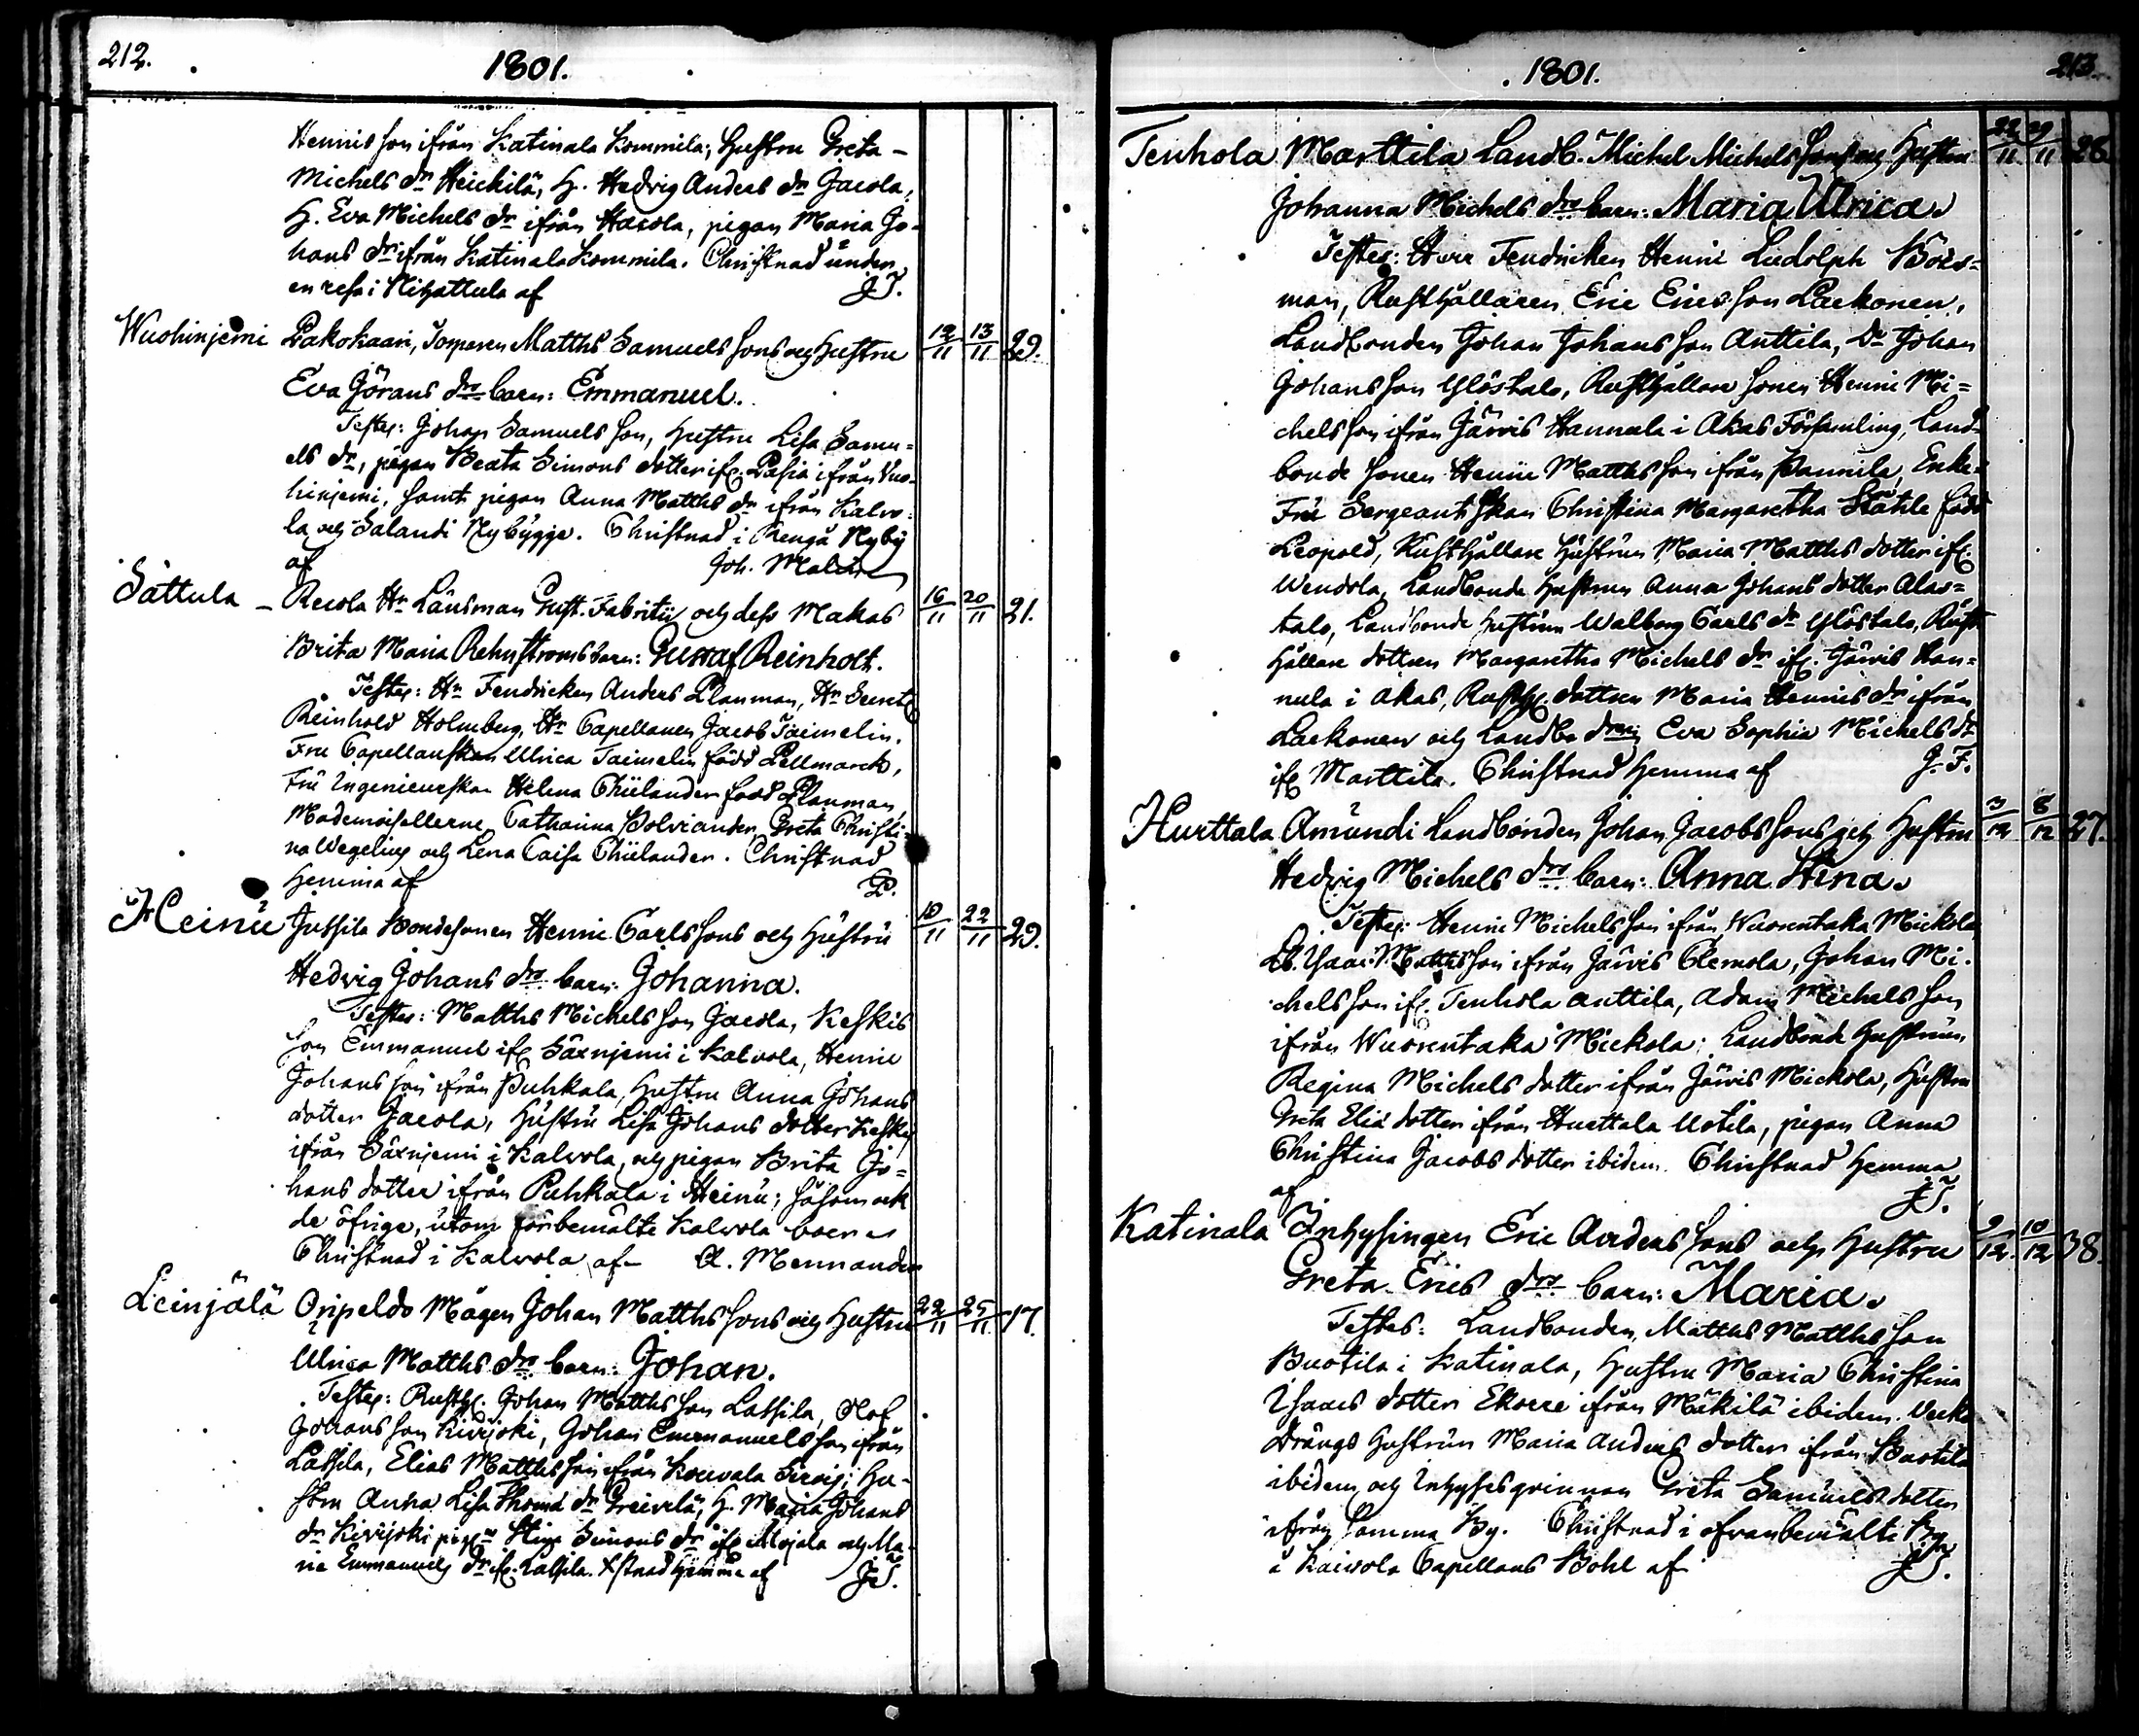 212.
1801.
Hennis son ifrån Katinala Kommila; Hustru Greta
Michels dr Heickilä, H. Hedvig Anders dr Jacola,
H. Eva Michels dr ifrån Hacola, pigan Maria Jo-
hans dr ifrån Katinala Kommila. Christnad under
en resa i Hihattula af J.T.
Wuohinjemi Pakokaari, Torparen Matths Samuels sons och Hustru 12/11 13/11 29.
Eva Görans drs barn: Emmanuel.
Testes: Johan Samuels son, Hustru Lisa Samu=
els dr, pigan Beata Simons dotter if. Pasia ifrån Vuo-
hinjemi, samt pigan Anna Matths dr ifrån Kalvo-
la och Salandi Nybygge. Christnad i Rengå Nyby
af Joh. Malin
Sattula Recola Hr Länsman Gust. Fabritii och dess Makas 16/11 20/11 21.
Brita Maria Rehnstroms barn: Gustaf Reinholt.
Testes: Hr Fendricken Anders Planman, Hr
Reinhold Holmberg, Hr Capellanen Jacob Taimelin,
Fru Capellanskan Ulrica Taimelin född Pellmarck,
Fru Ingenieurskan Helena Thilander född Planman,
Mademoisellerne Catharina Polviander, Greta Christi-
na Wegelius och Lena Caisa Thilander. Christnad
hemma af P.
Heinu Jussila Bondesonen Henric Carls sons och Hustru 18/11 22/11 29.
Hedvig Johans drs barn: Johanna.
Testes: Matths Michels son Jacola, Keskis
son Emmanuel if. Säxnjemi i Kalvola, Henric
Johans son ifrån Puhkala, Hustru Anna Johans
dotter Jacola, Hustru Lisa Johans dotter Keskis
ifrån Säxnjemi i Kalvola, och pigan Brita Jo=
hans dotter ifrån Puhkala i Heinu; såsom ock
de öfrige, utom förbemälte Kalvola boer
Christnad i Kalvola af A. Mennander
Leinjälä Oripeldo Mågen Johan Matths sons och Hustru 22/11 25/11 17.
Ulrica Matths drs barn: Johan.
Testes: Rusth. Johan Matths son Lassila, Olof
Johans son Kivijoki, Johan Emmanuels son ifrån
Lassila, Elias Matths son ifrån Kouvala Hu-
stru Anna Lisa Thomæ dr H. Maria Johans
dr Kivijoki pigan Stina Simons dr if. och Ma-
ria Emmanuels dr if. Lassila. Xstnad hemma af J.T.
1801.
213.
Tenhola Marttila Landb. Michel Michels sons och Hustru 22/11 29/11 28.
Johanna Michels drs barn: Maria Ulrica.
Testes: Herr Fendricken Henric Ludolph Bois=
man, Rusthållaren Eric Erics son Laekonen,
Landbonden Johan Johans son Anttila, Do Johan
Johans son Ylöstalo, Rusthållare sonen Henric Mi=
chels son ifrån Järvis Hannula i Akas Församling, Land-
bonde sonen Henric Matths son ifrån Pannila, Enke-
Fru Sergeantskan Christina Margaretha Ståhle född
Leopold, Rusthållare Hustrun Maria Matths dotter if.
Wendola, Landbonde Hustrun Anna Johans dotter Alas=
talo, Landbonde hustrun Walborg Carls dr Ylöstalo, Rust-
hållare dottren Margaretha Michels dr if. Järvis Han=
nula i Akas, Rusth. dottren Maria Hennis dr ifrån
Laekonen och Landbo dren Eva Sophia Michels dr
if. Marttila. Christnad hemma af J.F.
Hurttala Amundi Landbonden Johan Jacobs sons och Hustru 3/12 8/12 27.
Hedvig Michels drs barn: Anna Stina.
Testes: Henric Michels son ifrån Wuorentaka Mickola
Lb. Isaac Matths son ifrån Järvis Clemola, Johan Mi-
chels son if. Tenhola Anttila, Adam Michels son
ifrån Wuorentaka Mickola; Landbonde Hustrun
Regina Michels dotter ifrån Järvis Mickola, Hustru
Greta Eliæ dotter ifrån Hurttala Uotila, pigan Anna
Christina Jacobs dotter ibidem. Christnad hemma
af J.T.
Katinala Inhysingen Eric Anders sons och Hustru 9/12. 10/12 38.
Greta Erics drs barn: Maria.
Testes: Landbonden Matths Matths son
Buotila i Katinala, Hustru Maria Christina
Isaacs dotter Ekorre ifrån Mäkilä ibidem.
Drängs Hustrun Maria Anders dotter ifrån Buotila
ibidem och Inhysesqvinnan Greta Samuels dotter
ifrån samma By. Christnad i ofvanbemälte By
i Kaivola Capellans Bohl af J.T.